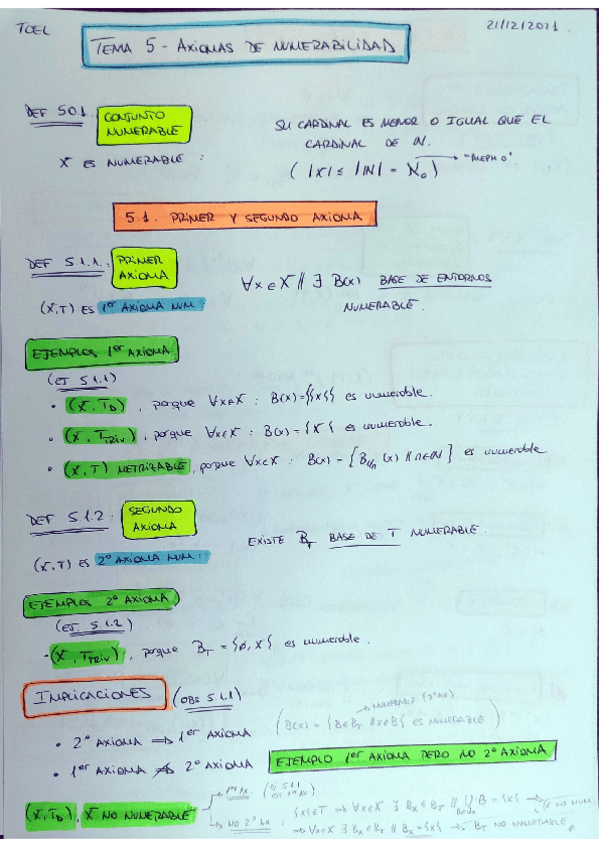 TCEL
21/12/2021
TEMA 5 - AXIOMAS DE NUMERABILIDAD
DEF 5.0.1. CONJUNTO NUMERABLE
SU CARDINAL ES MENOR O IGUAL QUE EL
X ES NUMERABLE :
CARDINAL DE ℕ.
( |X| ≤ |ℕ| = ℵ₀ ) → "ALEPH 0"
5.1. PRIMER Y SEGUNDO AXIOMA
DEF 5.1.1. PRIMER AXIOMA
∀x∈X // ∃ B(x) BASE DE ENTORNOS
(X,T) ES 1er AXIOMA NUM :
NUMERABLE.
EJEMPLOS 1er AXIOMA
(EJ 5.1.1)
· (X, T_D) , porque ∀x∈X : B(x) = {{x}} es numerable.
· (X, T_TRIV) , porque ∀x∈X : B(x) = {X} es numerable.
· (X, T) METRIZABLE , porque ∀x∈X : B(x) = { B_1/n (x) // n∈ℕ } es numerable
DEF 5.1.2 : SEGUNDO AXIOMA
EXISTE B_T BASE DE T NUMERABLE.
(X,T) ES 2º AXIOMA NUM :
EJEMPLOS 2º AXIOMA
(EJ. 5.1.2)
· (X, T_TRIV) , porque B_T = {∅, X} es numerable.
IMPLICACIONES (OBS 5.1.1)
→ NUMERABLE (2º AX)
( B(x) = { B∈B_T // x∈B } ES NUMERABLE )
· 2º AXIOMA ⇒ 1er AXIOMA
· 1er AXIOMA ⇏ 2º AXIOMA
EJEMPLO 1er AXIOMA PERO NO 2º AXIOMA
(X, T_D) , X NO NUMERABLE
→ 1er AX : (EJ 5.1.1 EJ 1er AX)
→ NO 2º AX : {x}∈T ⇒ ∀x∈X ∃ B_x ⊂ B_T // ∪ B = {x} ⇒ X NO NUM.
⇒ ∀x∈X ∃ B_x ∈ B_T // B_x = {x} ⇒ B_T NO NUMERABLE